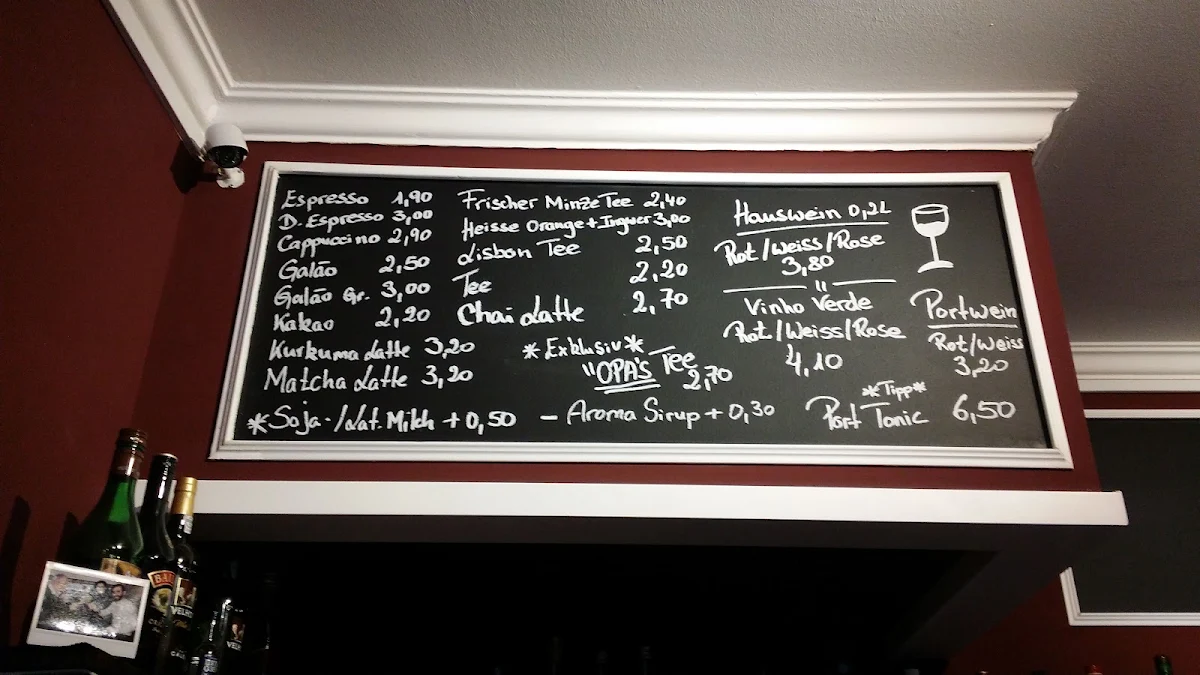 Espresso 1,90
D. Espresso 3,00
Cappuccino 2,90
Galão 2,50
Galão Gr. 3,00
Kakao 2,20
Kurkuma Latte 3,20
Matcha Latte 3,20
Frischer Minze Tee 2,40
Heisse Orange + Ingwer 3,00
Lisbon Tee 2,50
Tee 2,20
Chai Latte 2,70
*Exklusiv*
"OPA's Tee 2,70
*Soja-/Lat. Milch + 0,50 - Aroma Sirup + 0,30
Hauswein 0,2L
Rot/Weiss/Rose
3,80
"
Vinho Verde
Rot/Weiss/Rose
4,10
Portwein
Rot/Weiss
3,20
*Tipp*
Port Tonic 6,50